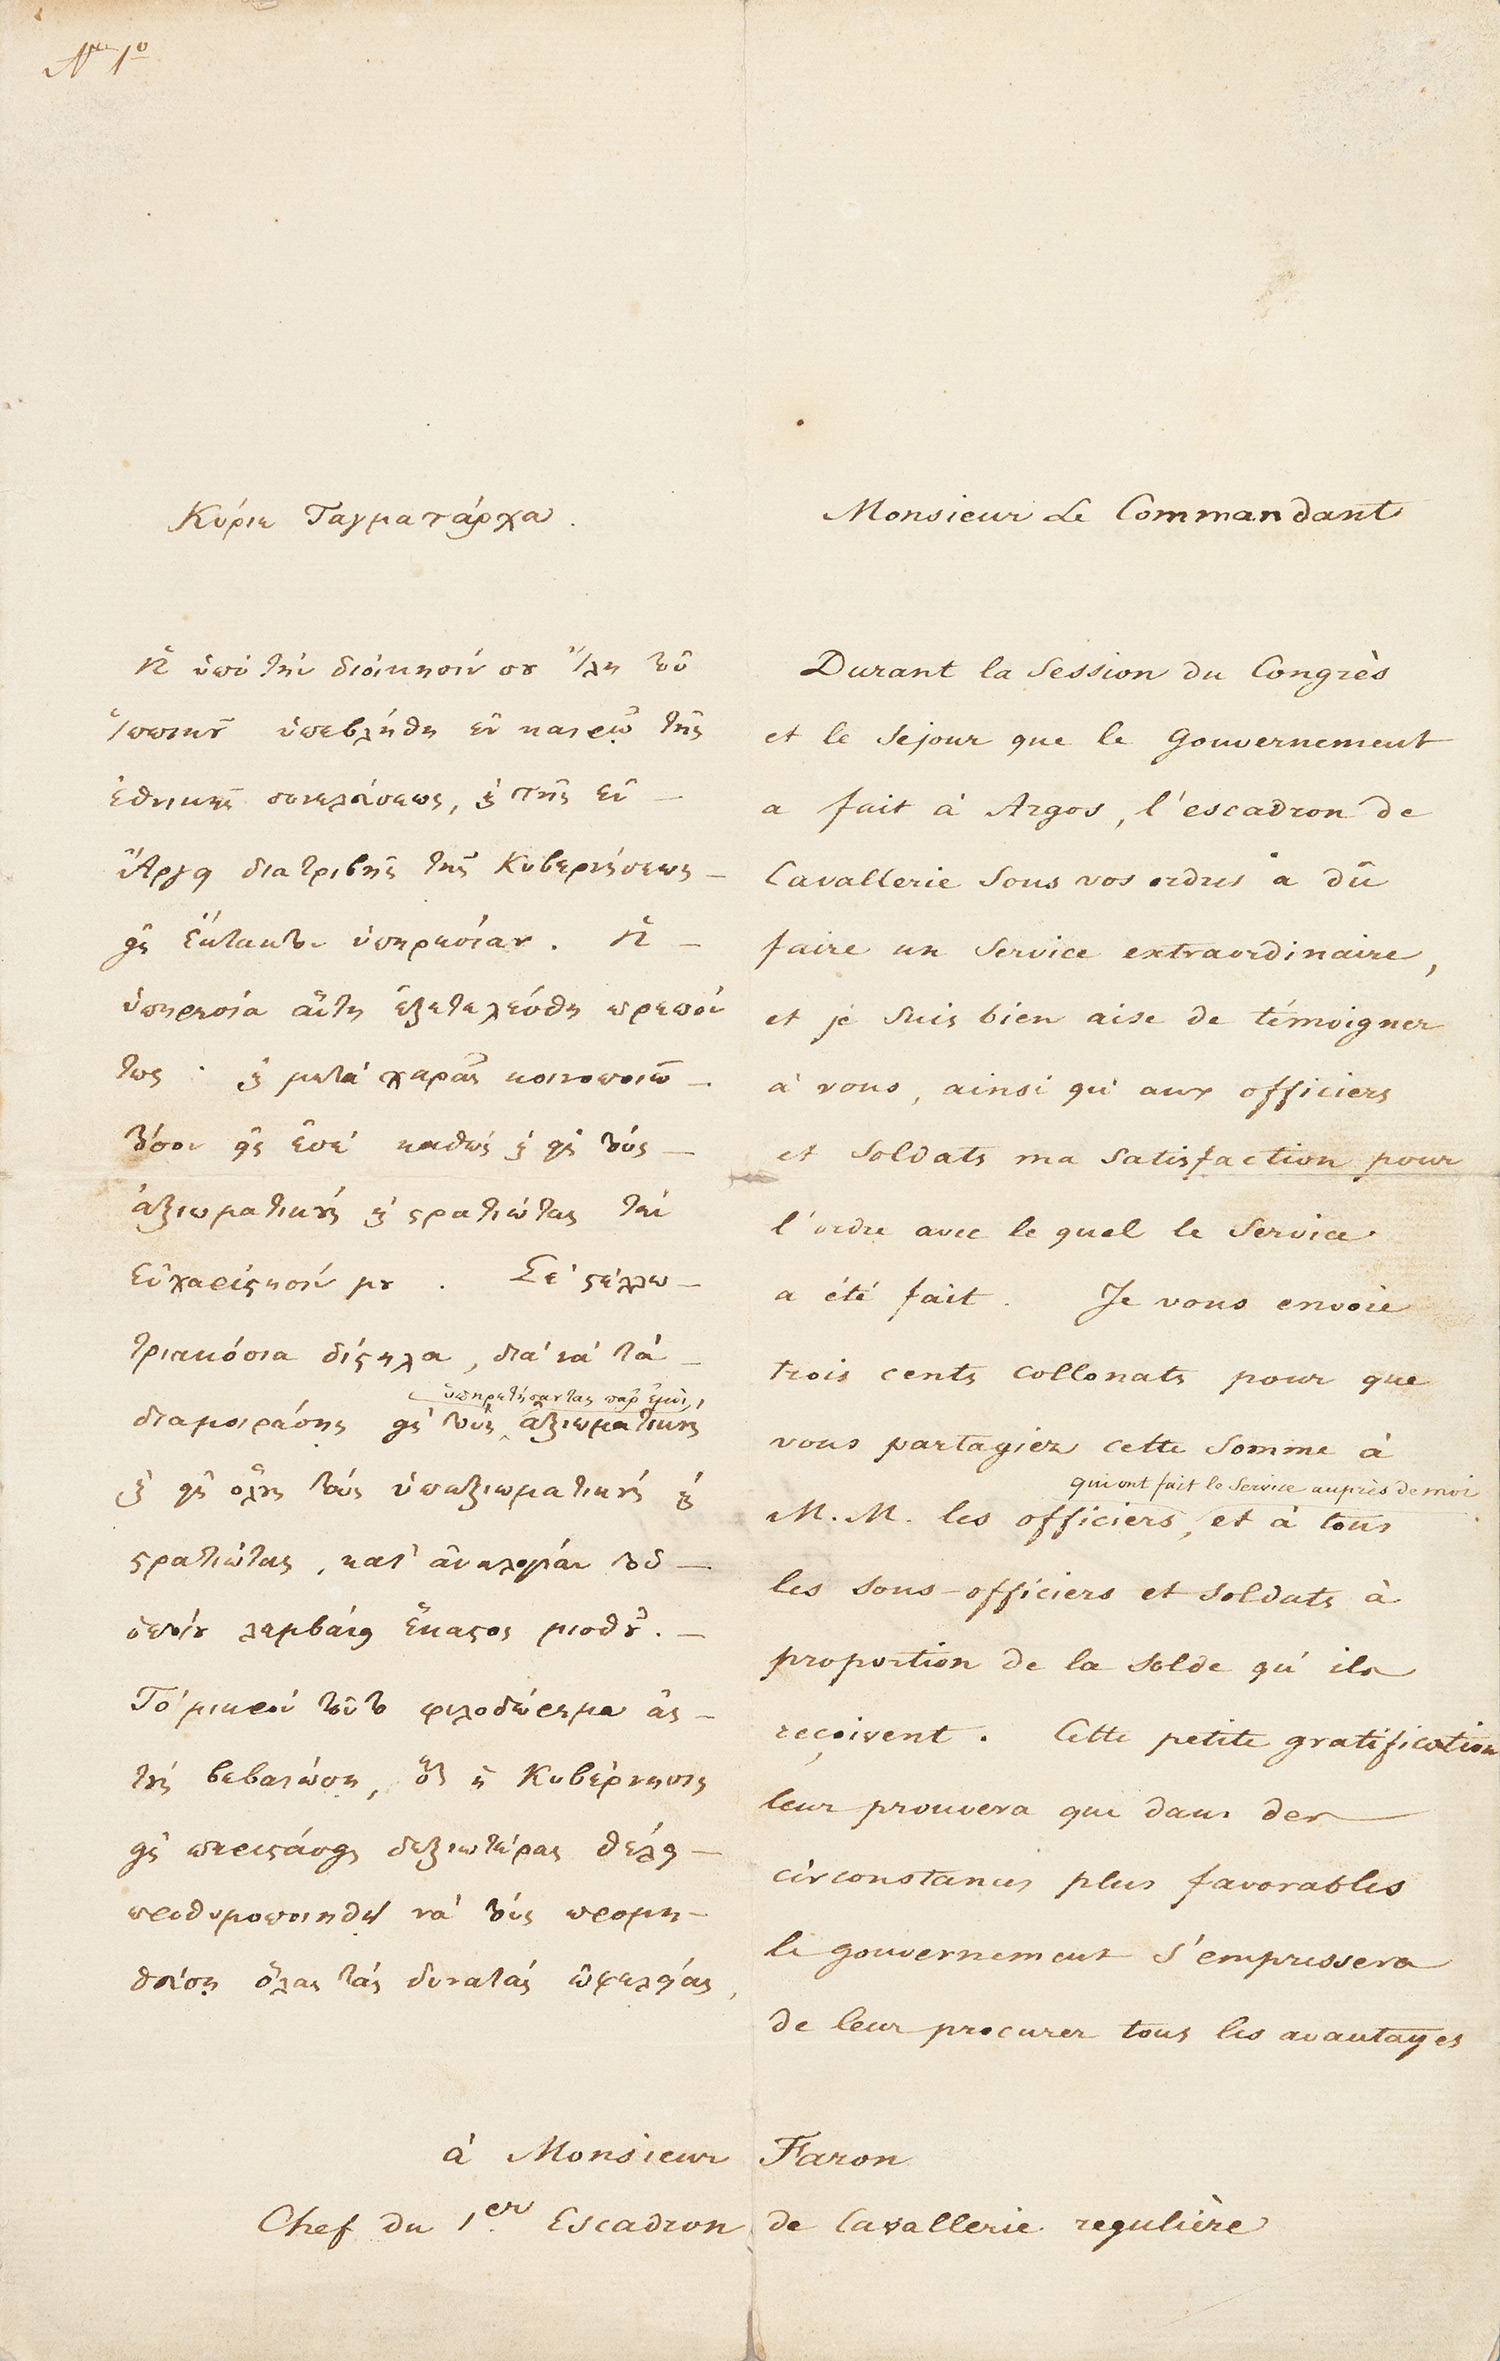 Nro 1o
Κύριε Ταγματάρχα.
Ἡ ὑπὸ τὴν διοίκησίν σου Ἴλη τοῦ
Ἱππικοῦ ὑπεβλήθη ἐν καιρῷ τῆς
ἐθνικῆς συνελεύσεως, καὶ τῆς ἐν —
Ἄργει διατριβῆς τῆς Κυβερνήσεως —
εἰς ἔκτακτον ὑπηρεσίαν. Ἡ —
ὑπηρεσία αὕτη ἐξετελέσθη πρεπόν
τως · καὶ μετὰ χαρᾶς κοινοποιῶ —
τόσον εἰς ἐσὲ καθὼς καὶ εἰς τοὺς —
ἀξιωματικοὺς καὶ στρατιώτας τὴν
εὐχαρίστησίν μου. Σὲ στέλλω —
τριακόσια δίστηλα, διὰ νὰ τὰ —
ὑπηρετήσαντας παρ' ἐμοὶ,
διαμοιράσης εἰς τοὺς ἀξιωματικοὺς
καὶ εἰς ὅλους τοὺς ὑπαξιωματικοὺς καὶ
στρατιώτας, κατ' ἀναλογίαν τοῦ —
ὁποίου λαμβάνει ἕκαστος μισθοῦ. —
Τὸ μικρὸν τοῦτο φιλοδώρημα ἂς —
τοὺς βεβαιώση, ὅτι ἡ Κυβέρνησις
εἰς περιστάσεις δεξιωτέρας θέλει —
προθυμοποιηθῆ νὰ τοὺς προμη-
θεύση ὅλας τὰς δυνατὰς ὠφελείας,
Monsieur Le Commandant
Durant la Session du Congrès
et le sejour que le Gouvernement
a fait à Argos, l'escadron de
Cavallerie Sous vos ordres a dû
faire un Service extraordinaire,
et je suis bien aise de témoigner
à vous, ainsi qu'aux officiers
et Soldats ma satisfaction pour
l'ordre avec le quel le Service
a été fait. Je vous envoie
trois cents collonats pour que
vous partagiez cette Somme à
qui ont fait le Service auprès de moi
M.M. les officiers, et à tous
les Sous-officiers et Soldats à
proportion de la Solde qu'ils
reçoivent. Cette petite gratification
leur prouvera que dans des
circonstances plus favorables
le gouvernement s'empressera
de leur procurer tous les avantages
à Monsieur Faron
Chef du 1er Escadron de Cavallerie regulière